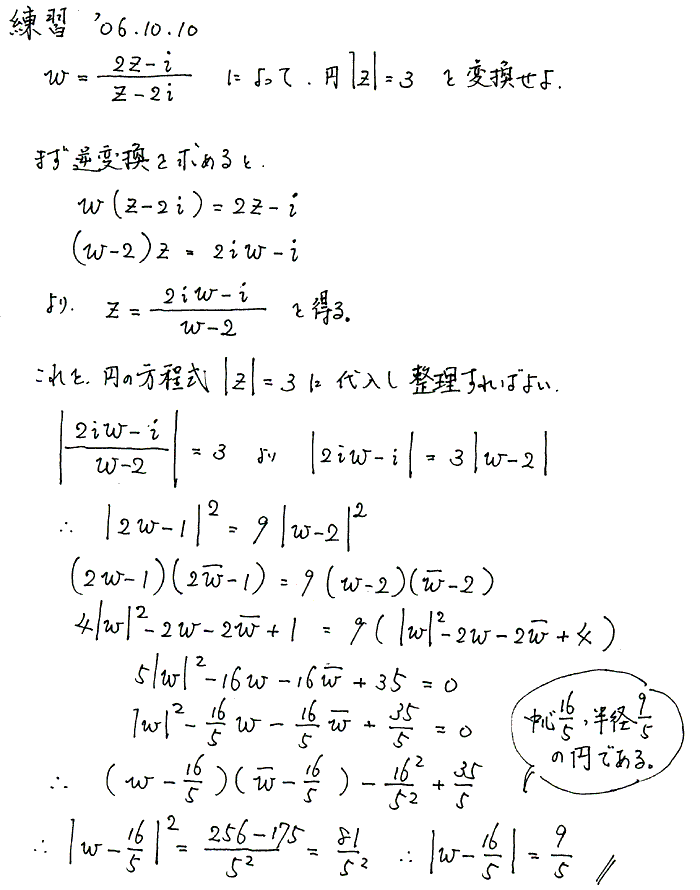 練習 '06.10.10
w = \frac{2z-i}{z-2i} によって、円|z|=3 を変換せよ.
まず逆変換を求めると.
w(z-2i) = 2z-i
(w-2)z = 2iw-i
より. z = \frac{2iw-i}{w-2} を得る。
これを、円の方程式 |z|=3 に代入し整理すればよい.
|\frac{2iw-i}{w-2}| = 3 より |2iw-i| = 3|w-2|
∴ |2w-1|^2 = 9|w-2|^2
(2w-1)(2\bar{w}-1) = 9(w-2)(\bar{w}-2)
4|w|^2-2w-2\bar{w}+1 = 9(|w|^2-2w-2\bar{w}+4)
5|w|^2-16w-16\bar{w}+35 = 0
|w|^2-\frac{16}{5}w-\frac{16}{5}\bar{w}+\frac{35}{5} = 0
∴ (w-\frac{16}{5})(\bar{w}-\frac{16}{5})-\frac{16^2}{5^2}+\frac{35}{5}
∴ |w-\frac{16}{5}|^2 = \frac{256-175}{5^2} = \frac{81}{5^2} ∴ |w-\frac{16}{5}| = \frac{9}{5} //
中心\frac{16}{5}, 半径\frac{9}{5}
の円である。